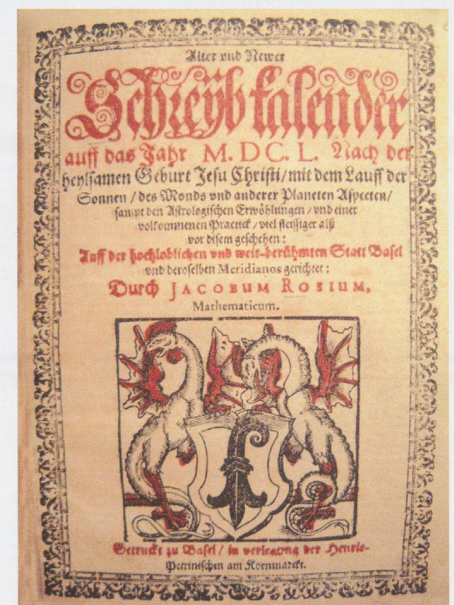 Alter vnd Newer
Schreyb kalender
auff das Jahr M. DC. L. Nach der
heylsamen Geburt Jesu Christi / mit dem Lauff der
Sonnen / des Monds vnd anderer Planeten Aspecten /
sampt den Astrologischen Erwöhlungen / vnd einer
volkommenen Practick / viel fleissiger alß
vor disem geschehen :
Auff der hochloblichen vnd weit-berühmten Statt Basel
vnd deroselben Meridianos gerichtet :
Durch JACOBUM ROSIUM,
Mathematicum.
Getruckt zu Basel / in verlegung der Henric-
Petrinischen am Kornmarckt.